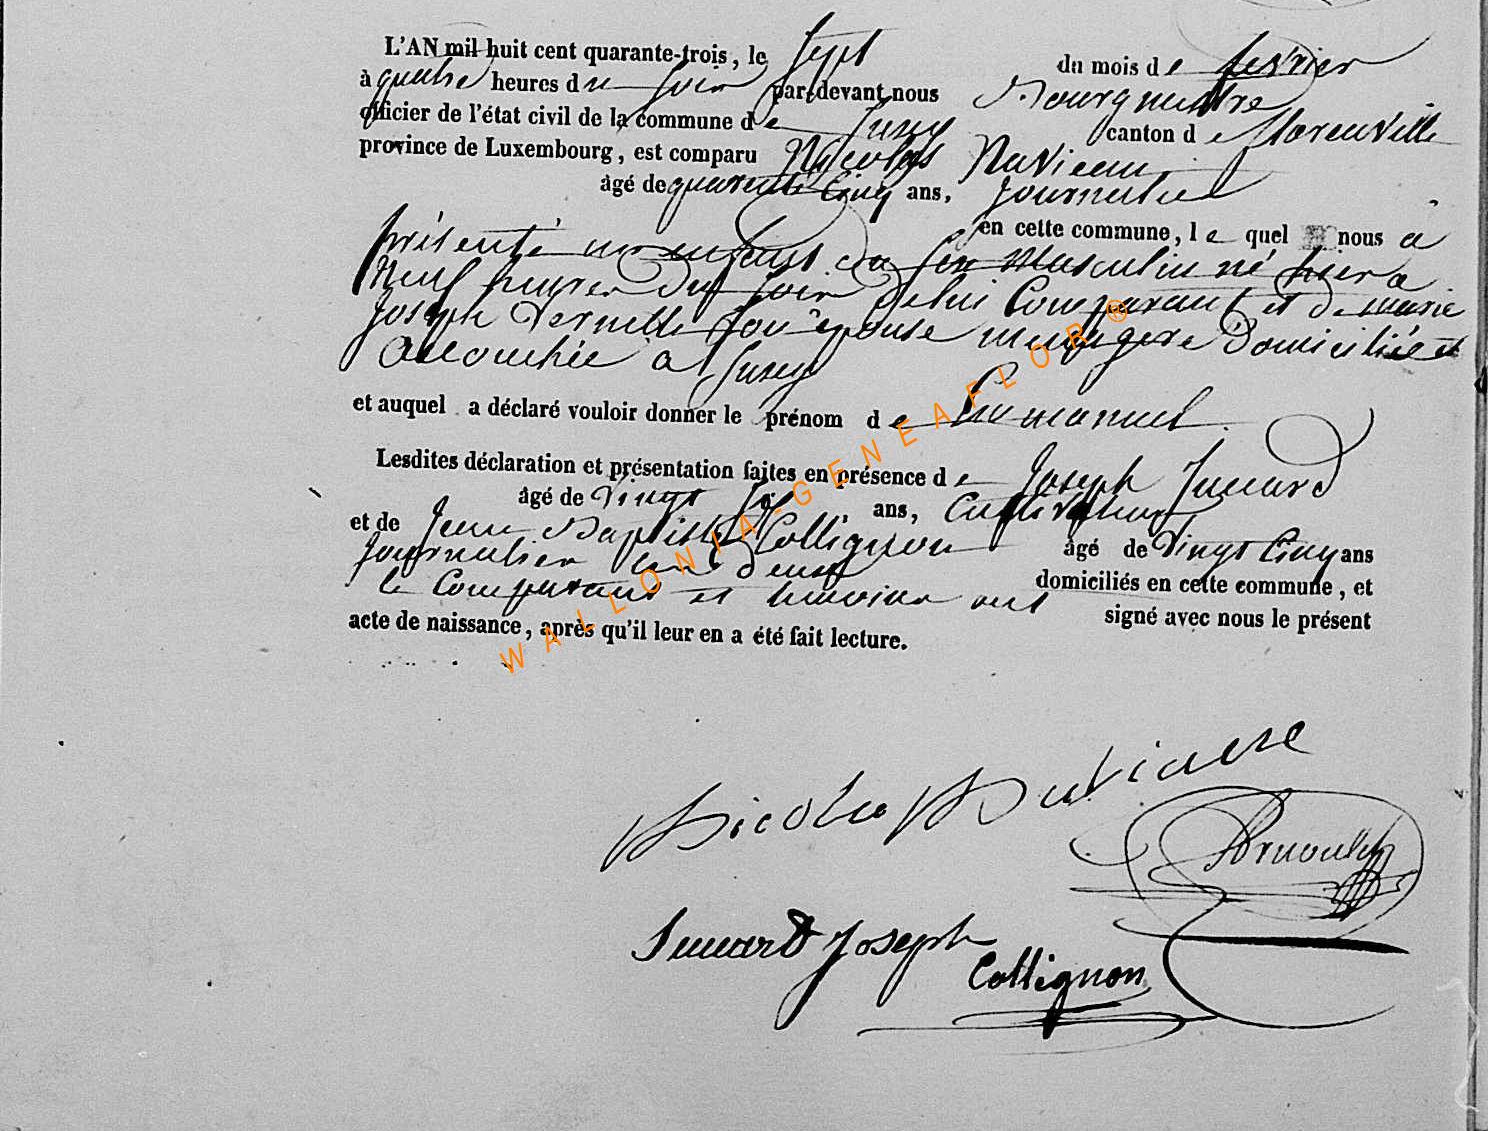 L'AN mil huit cent quarante-trois, le sept du mois de février
à quatre heures du soir par-devant nous Bourgmestre
officier de l'état civil de la commune de Jusey canton de
province de Luxembourg, est comparu Nicolas Naviaux
âgé de quarante cinq ans, journalier
en cette commune, lequel nous a
présenté un enfant du sexe masculin né hier à
neuf heures du soir de lui comparant et de marie
Joseph son épouse menagere domiciliée et
accouchée à Jusey
et auquel a déclaré vouloir donner le prénom de Emmanuel.
Lesdites déclaration et présentation faites en présence de Joseph
âgé de vingt six ans, cultivateur
et de Jean Baptiste Collignon âgé de vingt cinq ans
journalier tous deux domiciliés en cette commune, et
le comparant et temoins ont signé avec nous le présent
acte de naissance, après qu'il leur en a été fait lecture.
WALLONIA-GENEAFLOR ®
Nicolas
Arnould
Joseph
Collignon